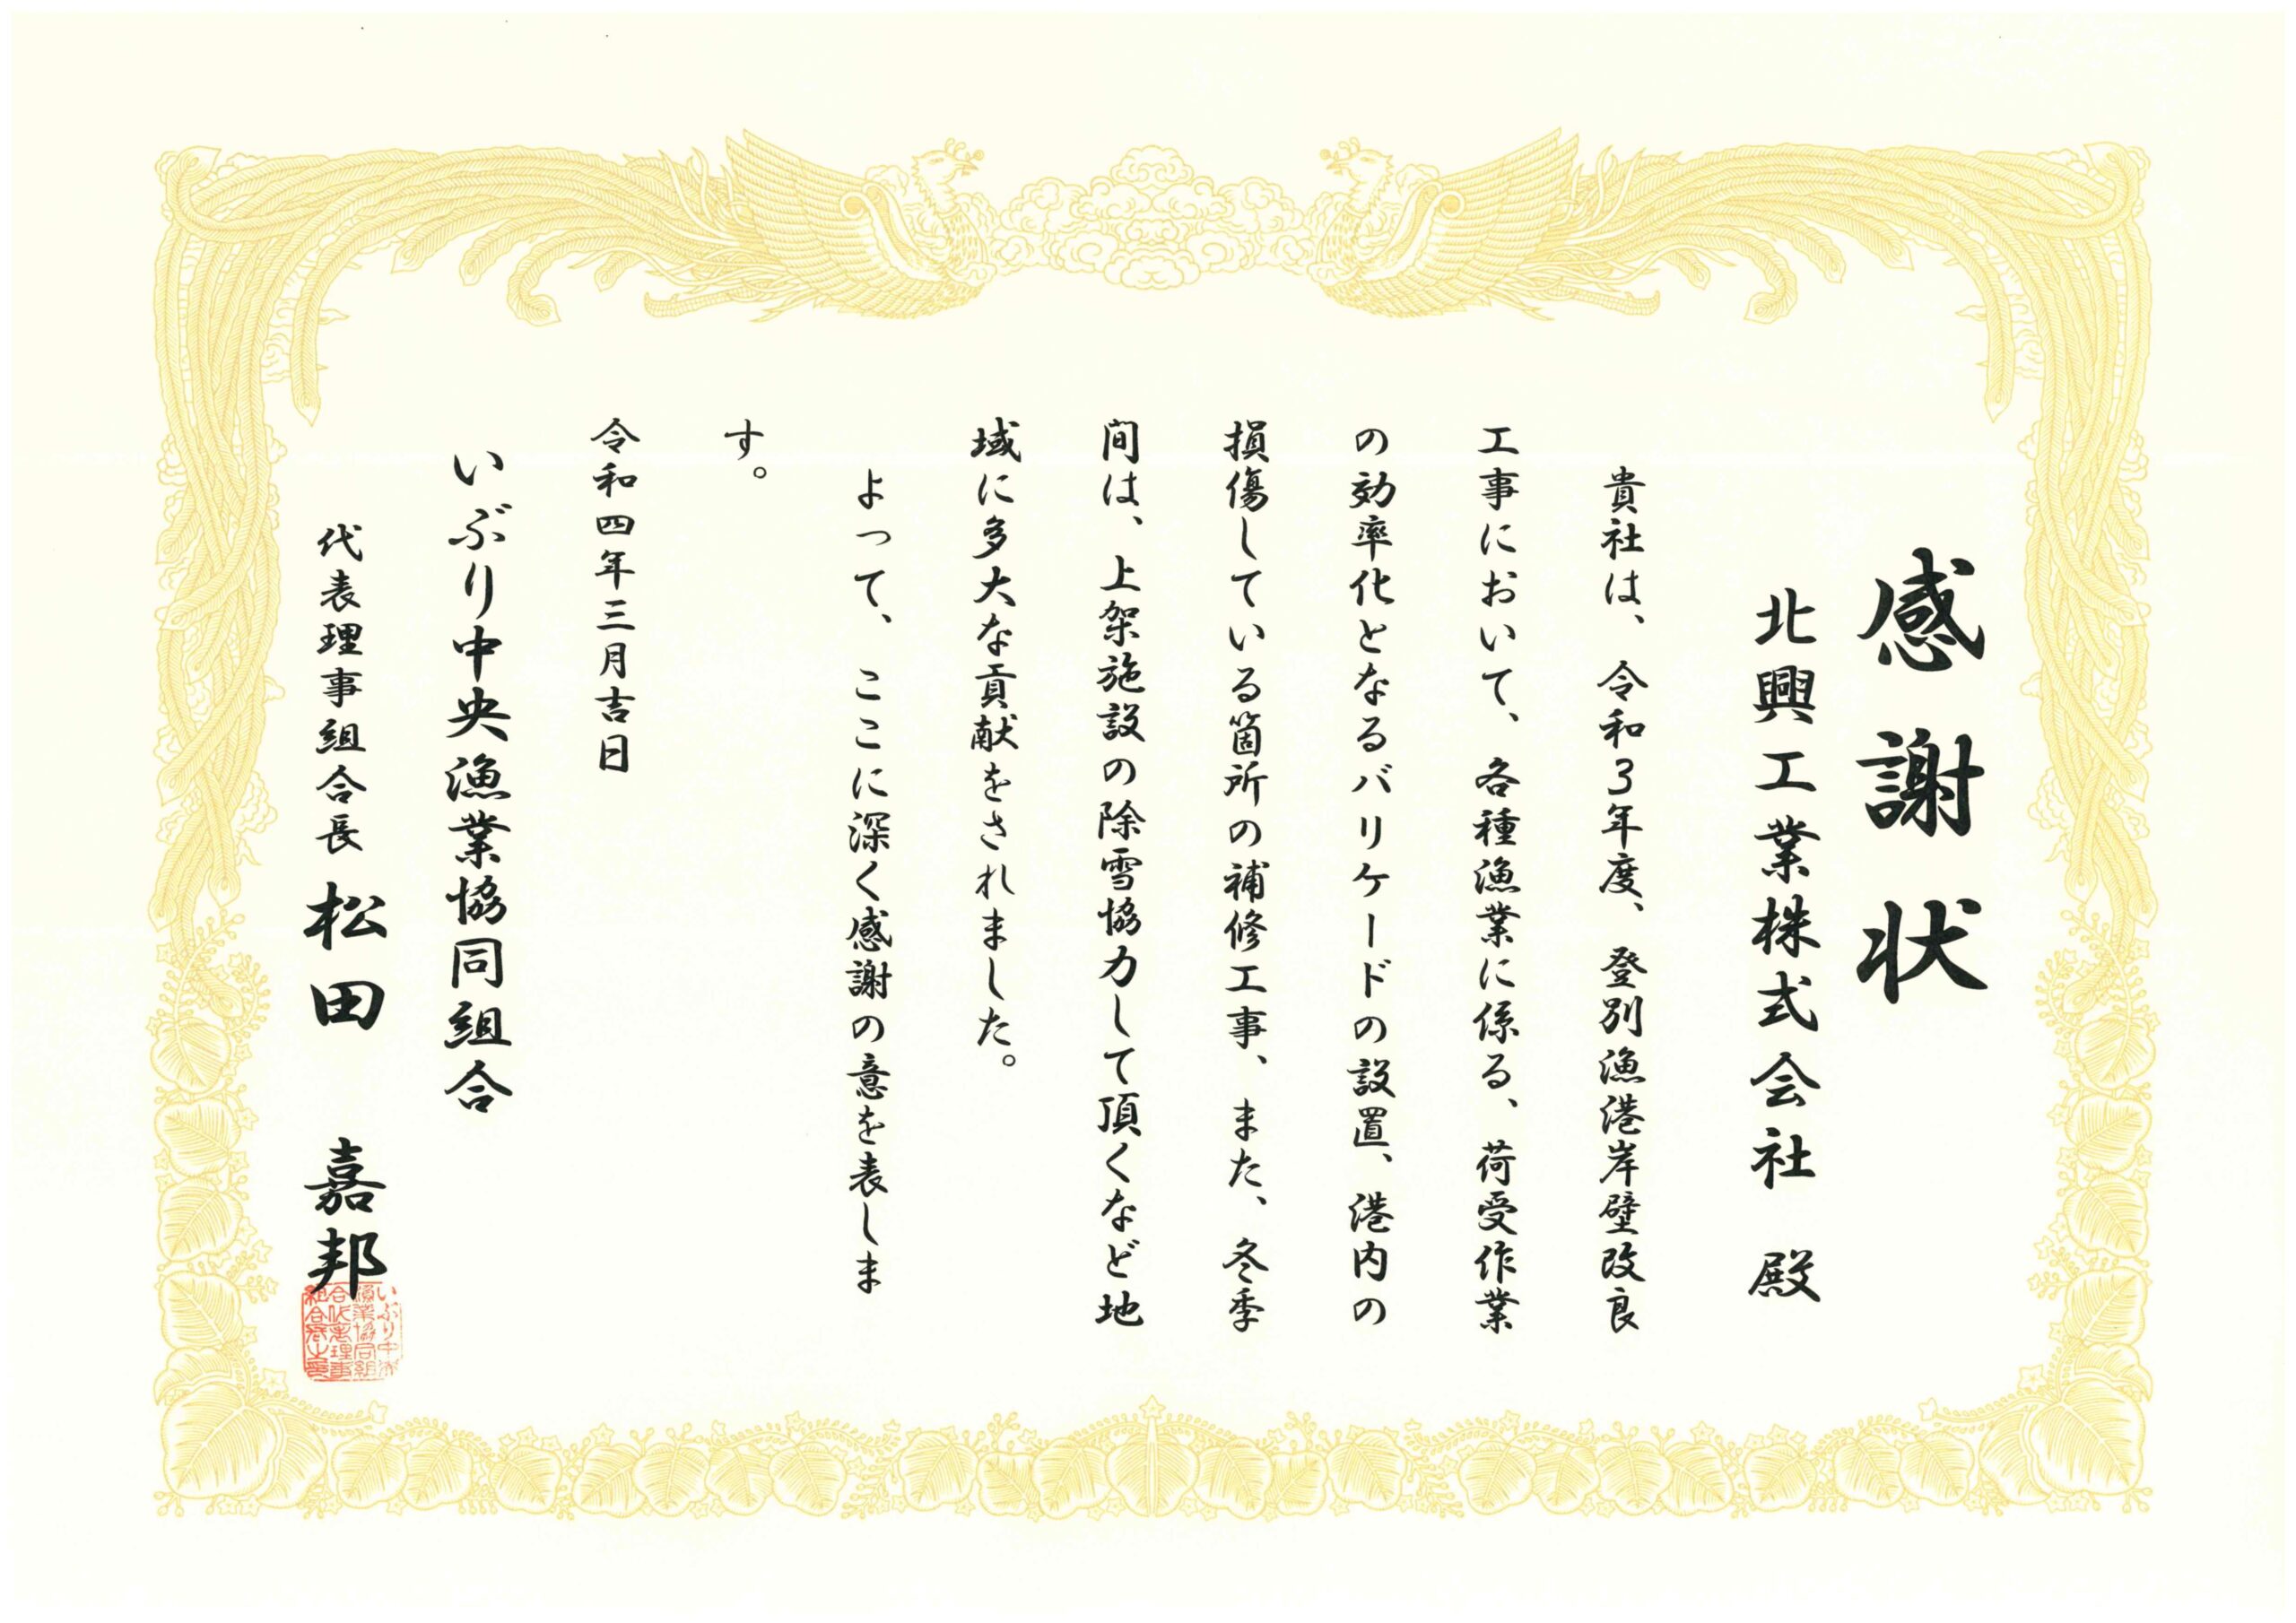 感謝状
北興工業株式会社 殿
貴社は、令和3年度、登別漁港岸壁改良
工事において、各種漁業に係る、荷受作業
の効率化となるバリケードの設置、港内の
損傷している箇所の補修工事、また、冬季
間は、上架施設の除雪協力して頂くなど地
域に多大な貢献をされました。
よって、ここに深く感謝の意を表しま
す。
令和四年三月吉日
いぶり中央漁業協同組合
代表理事組合長 松田 嘉邦
いぶり中央
漁業協同組
合代表理事
組合長之印